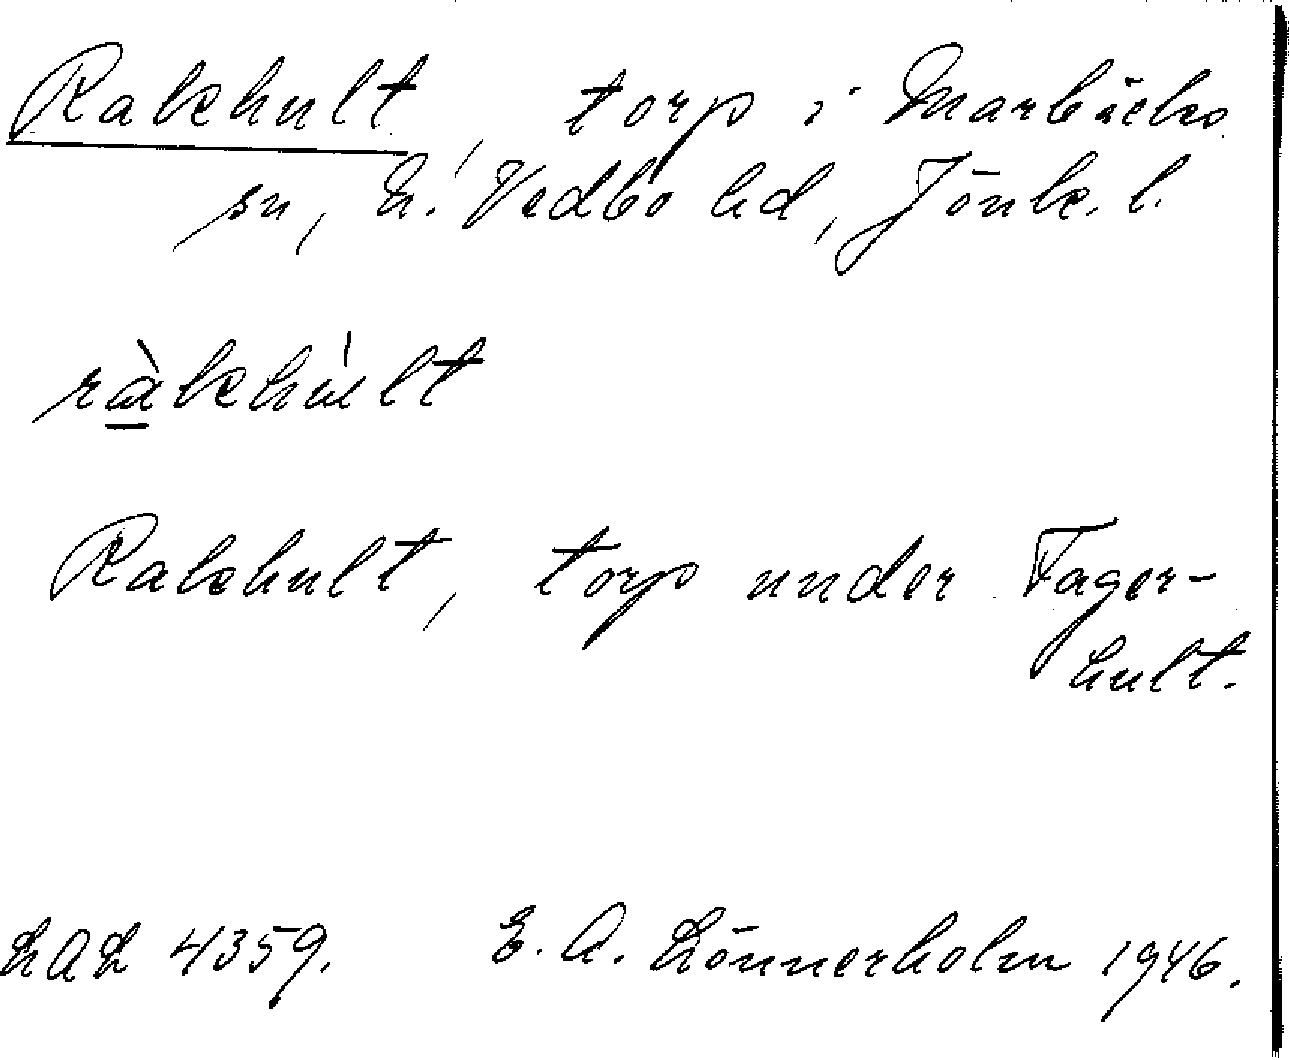 Rakhult, torp i Marbäcks
sn, N. Vedbo hd, Jönk. l.
ràkhúlt
Rakhult, torp under Fager-
hult.
LAL 4359. E. A. Lönnerholm 1946.